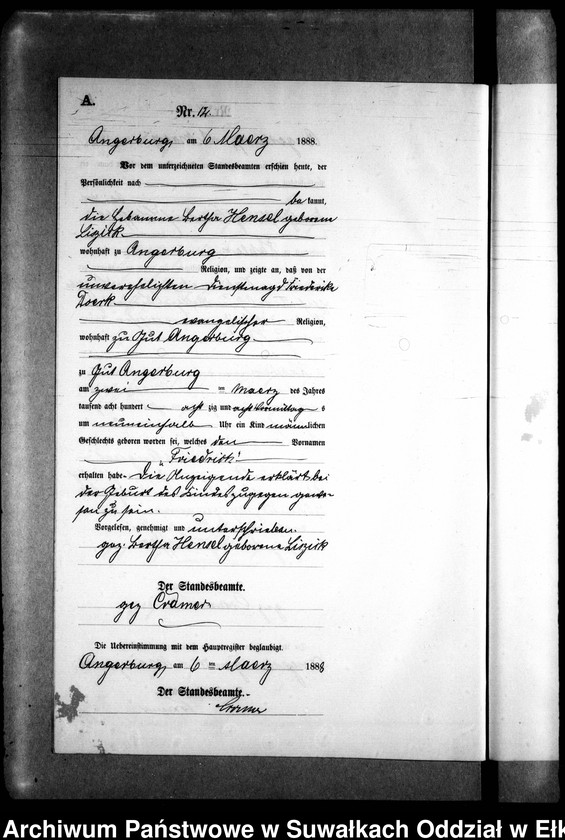 A.
Nr. 12.
Angerburg, am 6 Maerz 1888.
Vor dem unterzeichneten Standesbeamten erschien heute, der
Persönlichkeit nach
be kannt,
die Hebamme Bertha Hensel geborene
Liszik
wohnhaft zu Angerburg
Religion, und zeigte an, daß von der
unverehelichten Dienstmagd Friederike
evangelischer Religion,
wohnhaft zu Gut Angerburg
zu Gut Angerburg
am zwei ten Maerz des Jahres
tausend acht hundert acht zig und acht Vormittag s
um neuneinhalb Uhr ein Kind männlichen
Geschlechts geboren worden sei, welches den Vornamen
„Friedrich“
erhalten habe- Die Anzeigende erklärt bei
der Geburt des Kindes zugegen gewe-
sen zu sein.
Vorgelesen, genehmigt und unterschrieben
gez. Bertha Hensel geborene Liszik
Der Standesbeamte.
gez Cramer
Die Uebereinstimmung mit dem Hauptregister beglaubigt.
Angerburg, am 6 ten Maerz 1888
Der Standesbeamte.
Cramer
Archiwum Państwowe w Suwałkach Oddział w Ełk